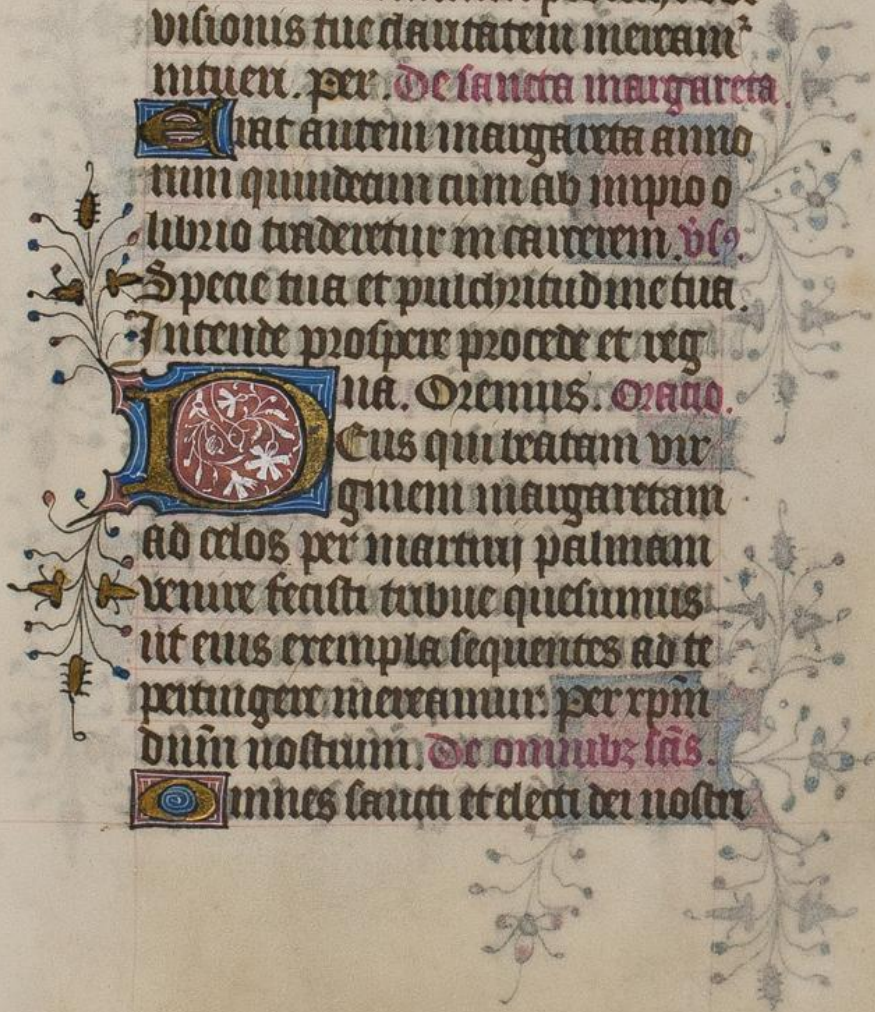 visionis tue claritatem meream²
intueri. per. De sancta margareta.
Erat autem margareta anno
rum quindecim cum ab impio o
librio traderetur in carcerem. v̉sꝯ.
Specie tua et pulchritudine tua.
Intende prospere procede et reg
na. Oremus. Oratio.
Deus qui beatam vir
ginem margaretam
ad celos per martirij palmam
venire fecisti tribue quesumus
ut eius exempla sequentes ad te
pertingere mereamur. Per xp̄m
dn̄m nostrum. De omnibꝫ sc̄is.
Omnes sancti et electi dei nostri